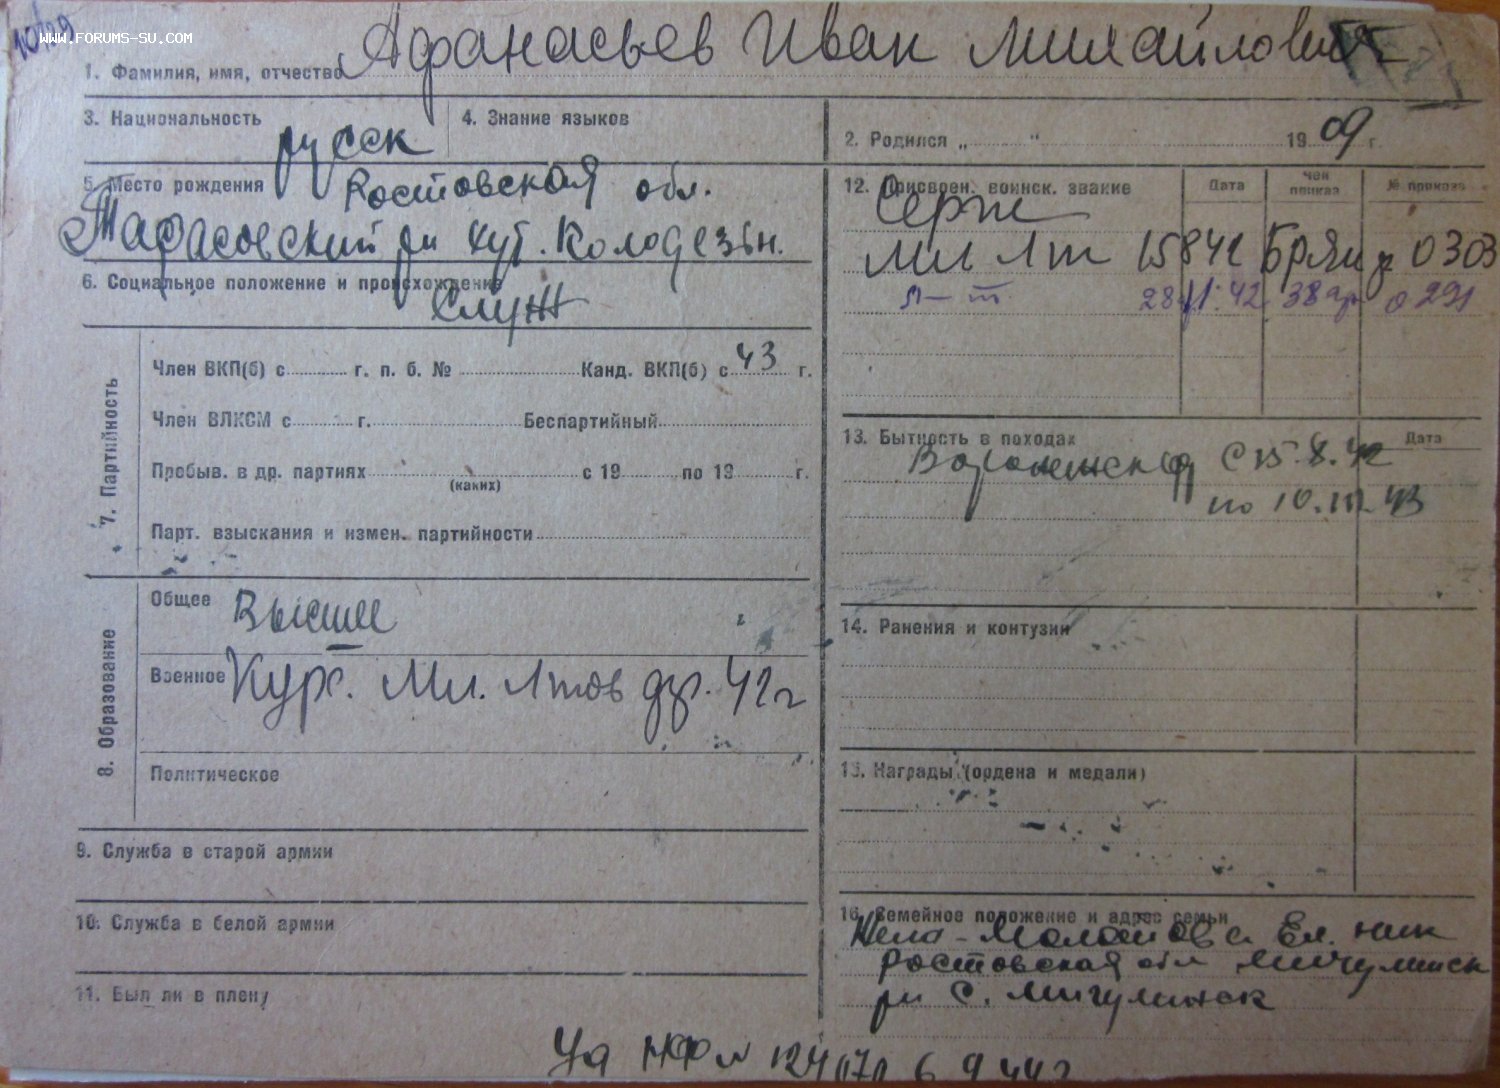 WWW.FORUMS-SU.COM
1. Фамилия, имя, отчество Афанасьев Иван Михайлович
3. Национальность русск
4. Знание языков
2. Родился „ “ 1909 г.
5. Место рождения Ростовская обл.
Тарасовский рн хут. Колодезн.
6. Социальное положение и происхождение
Служ
7. Партийность
Член ВКП(б) с г. п. б. № Канд. ВКП(б) с 43 г.
Член ВЛКСМ с г. Беспартийный
Пробыв. в др. партиях с 19 по 19 г.
(каких)
Парт. взыскания и измен. партийности
8. Образование
Общее Высшее
Военное Курс. Мл. Лтов 42 г
Политическое
9. Служба в старой армии
10. Служба в белой армии
11. Был ли в плену
12. Присвоен. воинск. звание Дата Чей приказ № приказа
Серж
Мл Лт 15842 Брян 0303
Л-т 28 42 38 ар 0291
13. Бытность в походах Дата
Воронежск ф С 15.8.42
по 10.III.43
14. Ранения и контузии
15. Награды (ордена и медали)
16. Семейное положение и адрес семьи
Жена - Ел. Ник
Ростовская обл Мигулинск
рн с. Мигулинск